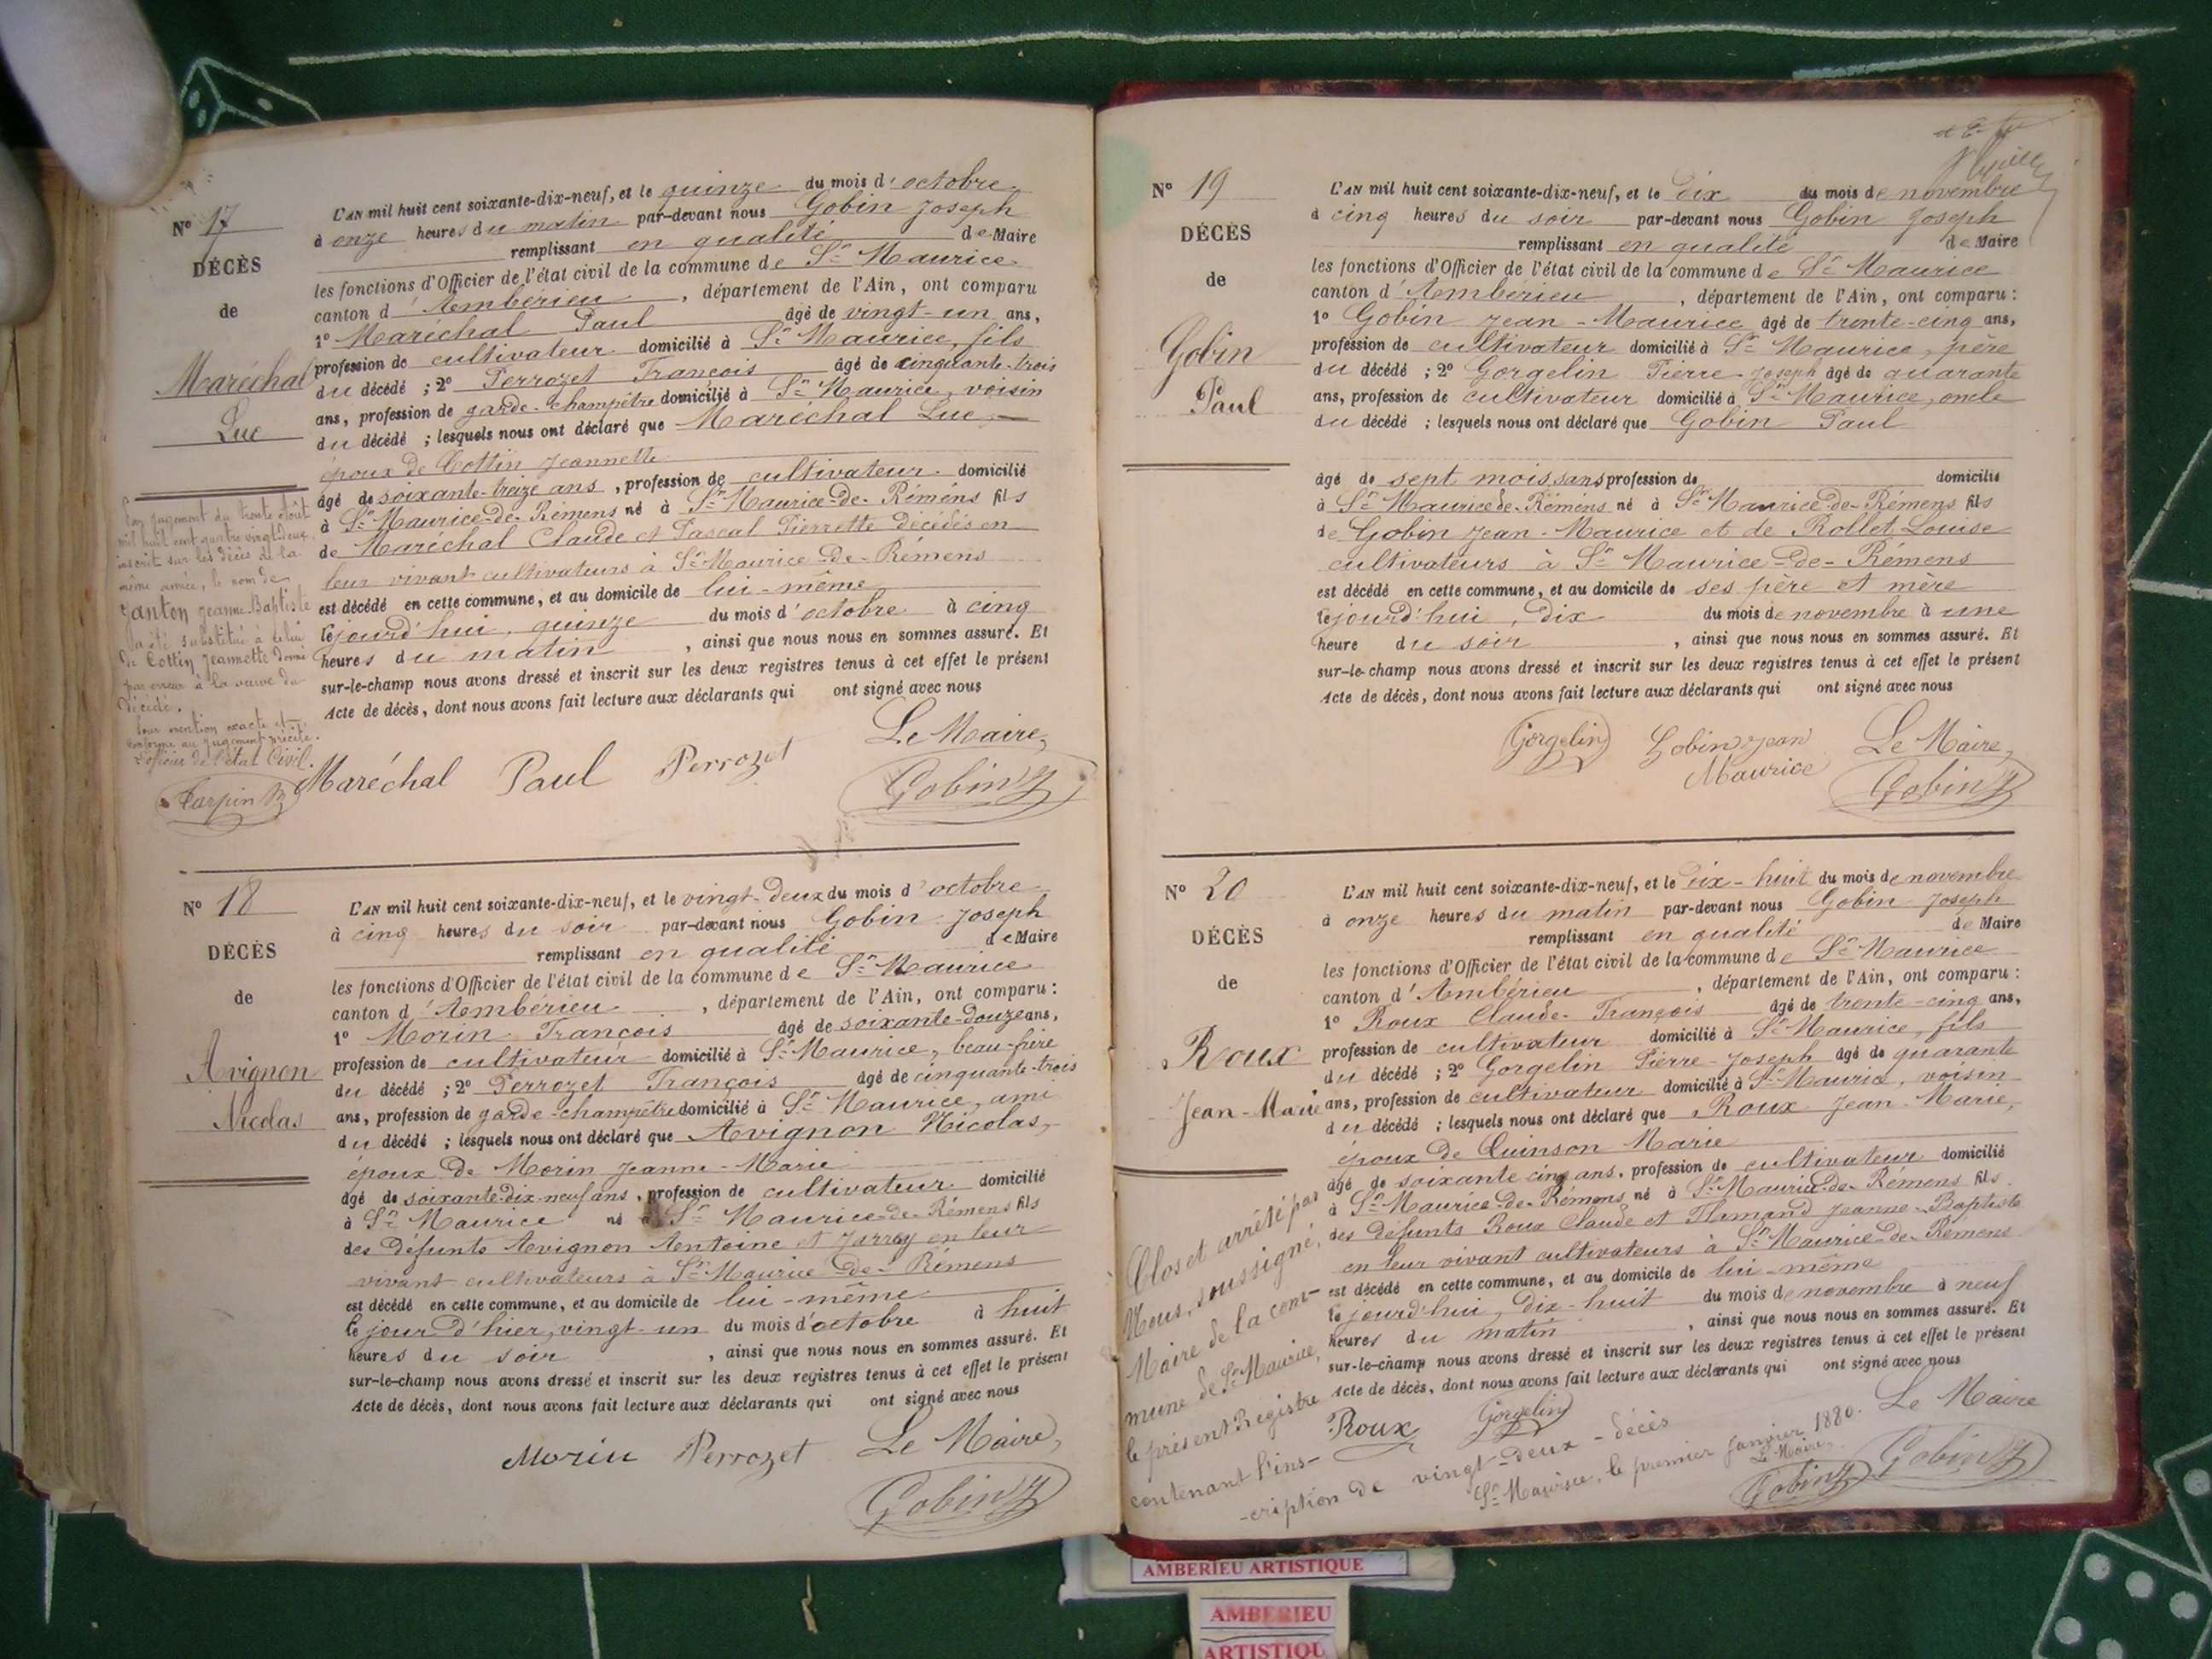 N° 17
DÉCÈS
de
Maréchal
Luc
L'AN mil huit cent soixante-dix-neuf, et le quinze du mois d'octobre
à onze heures du matin par-devant nous Gobin Joseph
remplissant en qualité de Maire
les fonctions d'Officier de l'état civil de la commune de St Maurice
canton d'Ambérieu, département de l'Ain, ont comparu
1° Maréchal Paul âgé de vingt-un ans,
profession de cultivateur domicilié à St Maurice, fils
du décédé ; 2° Perrozet François âgé de cinquante-trois
ans, profession de garde-champêtre domicilié à St Maurice, voisin
du décédé ; lesquels nous ont déclaré que Maréchal Luc,
époux de Cottin Jeannette
âgé de soixante-treize ans, profession de cultivateur domicilié
à St Maurice-de-Rémens né à St Maurice-de-Rémens fils
de Maréchal Claude et Pascal Pierrette décédés en
leur vivant cultivateurs à St Maurice-de-Rémens
est décédé en cette commune, et au domicile de lui-même
le jourd'hui, quinze du mois d'octobre à cinq
heures du matin, ainsi que nous nous en sommes assuré. Et
sur-le-champ nous avons dressé et inscrit sur les deux registres tenus à cet effet le présent
Acte de décès, dont nous avons fait lecture aux déclarants qui ont signé avec nous
Le Maire,
Maréchal Paul Perrozet Gobin J
Par jugement du trente Août
mil huit cent quatre vingt deux
inscrit sur les décès de la
même année, le nom de
Janton Jeanne-Baptiste
a été substitué à celui
de Cottin Jeannette donné
par erreur à la veuve du
décédé.
Pour mention exacte et
conforme au jugement précité.
L'officier de l'état Civil.
Tarpin
N° 18
DÉCÈS
de
Avignon
Nicolas
L'AN mil huit cent soixante-dix-neuf, et le vingt-deux du mois d'octobre
à cinq heures du soir par-devant nous Gobin Joseph
remplissant en qualité de Maire
les fonctions d'Officier de l'état civil de la commune de St Maurice
canton d'Ambérieu, département de l'Ain, ont comparu :
1° Morin François âgé de soixante-douze ans,
profession de cultivateur domicilié à St Maurice, beau-frère
du décédé ; 2° Perrozet François âgé de cinquante-trois
ans, profession de garde-champêtre domicilié à St Maurice, ami
du décédé ; lesquels nous ont déclaré que Avignon Nicolas,
époux de Morin Jeanne-Marie
âgé de soixante-dix-neuf ans, profession de cultivateur domicilié
à St Maurice né à St Maurice-de-Rémens fils
des défunts Avignon Antoine et Jarray en leur
vivant cultivateurs à St Maurice-de-Rémens
est décédé en cette commune, et au domicile de lui-même
le jour d'hier, vingt-un du mois d'octobre à huit
heures du soir, ainsi que nous nous en sommes assuré. Et
sur-le-champ nous avons dressé et inscrit sur les deux registres tenus à cet effet le présent
Acte de décès, dont nous avons fait lecture aux déclarants qui ont signé avec nous
Morin Perrozet Le Maire,
Gobin J
N° 19
DÉCÈS
de
Gobin
Paul
L'AN mil huit cent soixante-dix-neuf, et le dix du mois de novembre
à cinq heures du soir par-devant nous Gobin Joseph
remplissant en qualité de Maire
les fonctions d'Officier de l'état civil de la commune de St Maurice
canton d'Ambérieu, département de l'Ain, ont comparu :
1° Gobin Jean-Maurice âgé de trente-cinq ans,
profession de cultivateur domicilié à St Maurice, père
du décédé ; 2° Gorgelin Pierre-Joseph âgé de quarante
ans, profession de cultivateur domicilié à St Maurice, oncle
du décédé ; lesquels nous ont déclaré que Gobin Paul
âgé de sept mois, sans profession de domicilié
à St Maurice-de-Rémens né à St Maurice-de-Rémens fils
de Gobin Jean-Maurice et de Rollet Louise
cultivateurs à St Maurice-de-Rémens
est décédé en cette commune, et au domicile de ses père et mère
le jourd'hui, dix du mois de novembre à une
heure du soir, ainsi que nous nous en sommes assuré. Et
sur-le-champ nous avons dressé et inscrit sur les deux registres tenus à cet effet le présent
Acte de décès, dont nous avons fait lecture aux déclarants qui ont signé avec nous
Gorgelin Gobin Jean Le Maire,
Maurice Gobin J
N° 20
DÉCÈS
de
Roux
Jean-Marie
L'AN mil huit cent soixante-dix-neuf, et le dix-huit du mois de novembre
à onze heures du matin par-devant nous Gobin Joseph
remplissant en qualité de Maire
les fonctions d'Officier de l'état civil de la commune de St Maurice
canton d'Ambérieu, département de l'Ain, ont comparu :
1° Roux Claude-François âgé de trente-cinq ans,
profession de cultivateur domicilié à St Maurice, fils
du décédé ; 2° Gorgelin Pierre-Joseph âgé de quarante
ans, profession de cultivateur domicilié à St Maurice, voisin
du décédé ; lesquels nous ont déclaré que Roux Jean-Marie,
époux de Quinson Marie
âgé de soixante cinq ans, profession de cultivateur domicilié
à St Maurice-de-Rémens né à St Maurice-de-Rémens fils
des défunts Roux Claude et Flamand Jeanne-Baptiste
en leur vivant cultivateurs à St Maurice-de-Rémens
est décédé en cette commune, et au domicile de lui-même
le jourd'hui, dix-huit du mois de novembre à neuf
heures du matin, ainsi que nous nous en sommes assuré. Et
sur-le-champ nous avons dressé et inscrit sur les deux registres tenus à cet effet le présent
Acte de décès, dont nous avons fait lecture aux déclarants qui ont signé avec nous
Roux Gorgelin Le Maire
Gobin J
Clos et arrêté par
Nous, soussigné,
Maire de la com-
mune de St Maurice,
le présent Registre
contenant l'ins-
-cription de vingt-deux-décès
St Maurice, le premier Janvier 1880.
Le Maire,
Gobin J
AMBERIEU ARTISTIQUE
AMBERIEU
ARTISTIQU